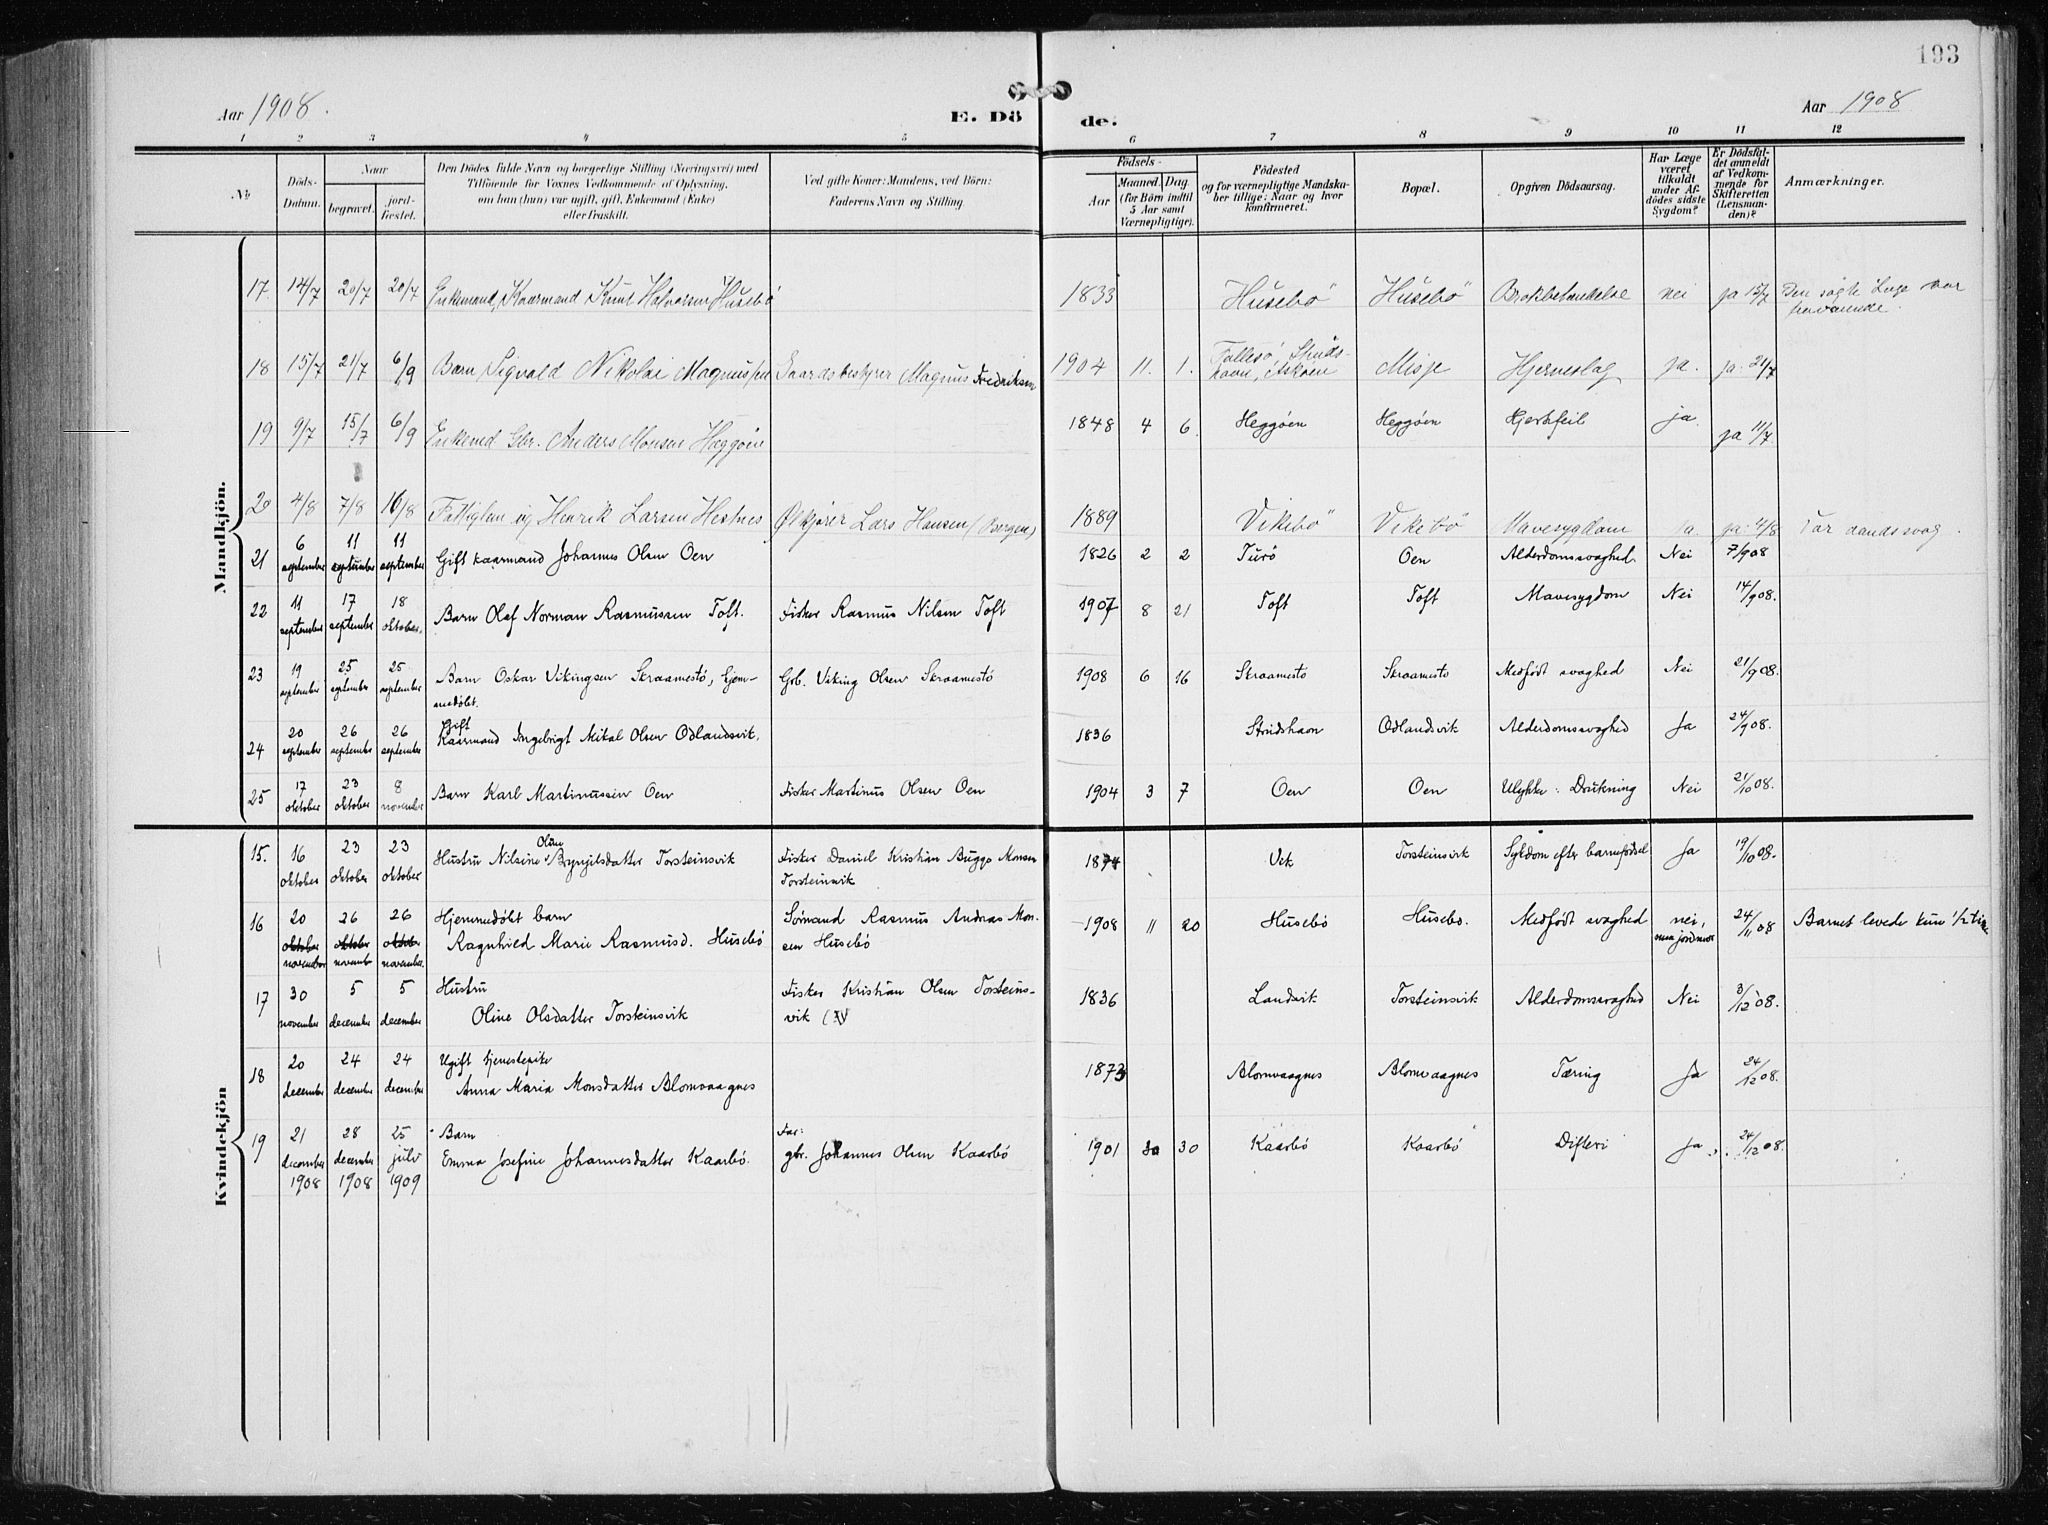 193
Aar 1908.
E. Döde.
Aar 1908
1 2 3 4 5 6 7 8 9 10 11 12
No
Döds-Datum.
Naar
begravet.
jord-fæstet.
Den Dödes fulde Navn og borgerlige Stilling (Næringsvei) med
Tilföiende for Voxnes Vedkommende af Oplysning,
om han (hun) var ugift, gift, Enkemand (Enke)
eller fraskilt.
Ved gifte Koner: Mandens, ved Börn:
Faderens Navn og Stilling.
Födsels-
Aar
Maaned. Dag.
(for Börn indtil
5 Aar samt
Værnepligtige).
Födested
og for værnepligtige Mandska-
ber tillige: Naar og hvor
konfirmeret.
Bopæl.
Opgiven Dödsaarsag.
Har Læge
været
tilkaldt
under Af-
dödes sidste
Sygdom?
Er Dödsfal-
det anmeldt
af Vedkom-
mende for
Skifteretten
(Lensman-
den)?
Anmærkninger.
Mandkjön.
17. 14/7 20/7 20/7 Enkemand, Kaarmand Knut Halvorsen Husebö 1833 Husebö Husebö Brokbetændelse nei ja 15/7 Den søgte Læge var
fraværende.
18 15/7 21/7 6/9 Barn Sigvald Nikolai Magnussen Gaardsbestyrer Magnus Fredriksen 1904 11. 1. Misje Hjerneslag ja. ja. 21/7
19 9/7 15/7 6/9 Enkemd Gbr. Anders Monsen Heggøen 1848 4 6 Heggøen Heggøen Hjertefeil ja. ja 11/7
20 4/8 7/8 16/8 Fattiglem ug Henrik Larsen Hestnes Ølkjører Lars Hansen (Bergen) 1889 Vikebö Vikebö Mavesygdom ja. ja. 4/8 Var aandssvag.
21 6 september 11 september 11 september Gift kaarmand Johannes Olsen Oen 1826 2 2 Turö Oen Alderdomssvaghed. Nei 7/9 08
22 11 september 17 september 18 oktober. Barn Olaf Norman Rasmussen Toft. Fisker Rasmus Nilsen Toft 1907 8 21 Toft Toft Mavesygdom Nei 14/9 08.
23 19 september 25 september 25 september Barn Oskar Vikingsen Skraamestö, hjem-
medøbt. Gbr. Viking Olsen Skraamestö 1908 6 16 Skraamestö Skraamestö Medfødt svaghed Nei 21/9 08.
24 20 september 26 september 26 september Gift
Kaarmand Ingebrigt Mikal Olsen Odlandsvik. 1836 Odlandsvik Alderdomssvaghed Ja 24/9 08.
25 17 oktober 23 oktober 8 november Barn Karl Martinussen Oen Fisker Martinus Olsen Oen 1904 3 7 Oen Oen Ulykke: Drukning Nei 21/10 08.
Kvindekjön
15. 16 oktober 23 oktober 23 oktober Hustru Nilsine Oline Brynjelsdatter Torsteinsvik Fisker Daniel Kristian Bugge Monsen
Torsteinsvik 1874 Vik Torsteinsvik Sykdom efter barnefødsel Ja 19/10 08.
16 20 oktober november 26 oktober november 26 oktober november. Hjemmedøbt barn
Ragnhild Marie Rasmusd. Husebö Sømand Rasmus Andreas Mon-
sen Husebö 1908 11 20 Husebö Husebö. Medfødt svaghed nei,
men jordmor 24/11 08 Barnet levede kun 1/2 time
17 30 november 5 december 5 december Hustru
Oline Olsdatter Torsteinsvik Fisker Kristian Olsen Torsteins-
vik 1836 Landsvik Torsteinsvik Alderdomssvaghed Nei 3/12 08.
18 20 december 24 december 24 december Ugift tjenestepike
Anna Maria Monsdatter Blomvaagnes 1873 Blomvaagnes Blomvaagnes Tæring Ja 24/12 08.
19 21 december 1908 28 december 1908 25 juli 1909 Barn
Emma Josefine Johannesdatter Kaarbö. Far:
gbr. Johannes Olsen Kaarbö 1901 30 Kaarbö Kaarbö Difteri Ja 24/12 08.